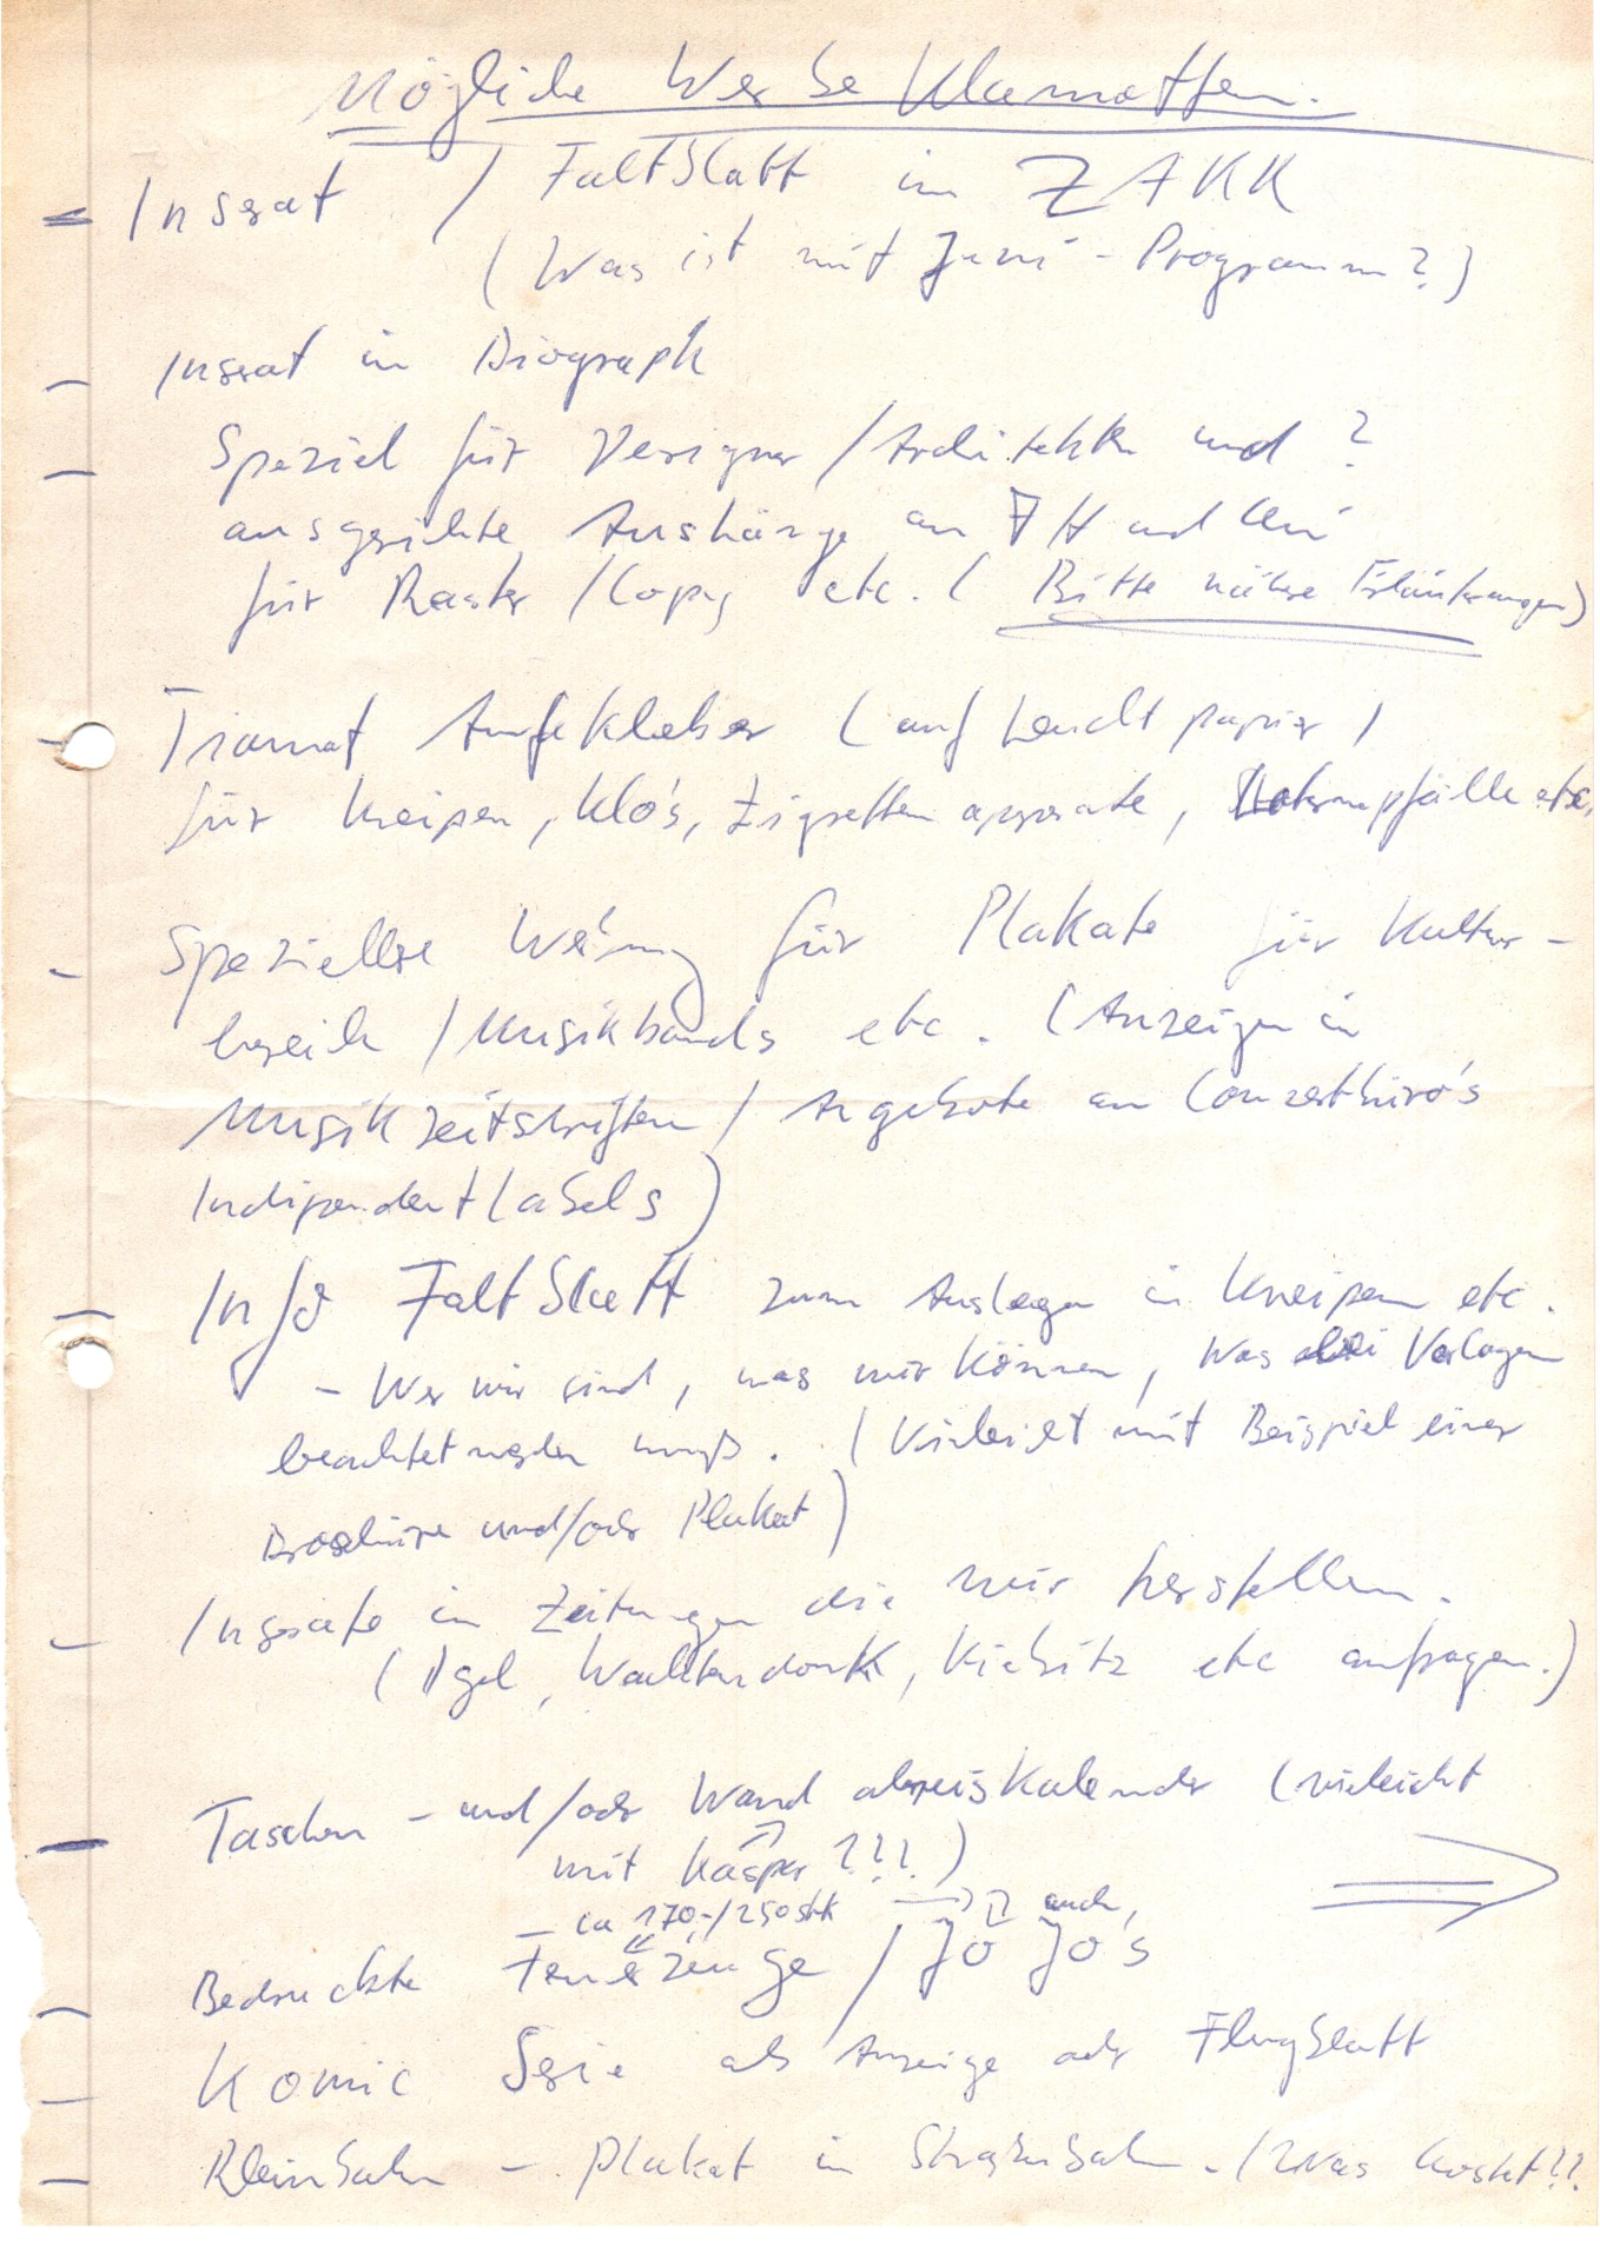 Mögliche Werbe Klamotten.
- Inserat / Faltblatt im ZAKK
(Was ist mit Juni-Programm?)
- Inserat in Biograph
- Speziel für Designer/Architekten und ?
ausgerichte Aushänge an FH und Uni
für Raster/Copy etc. (Bitte nähere Erläuterungen)
- Aufekleber (auf Leucht papier)
für Kneipen, Klo's, Zigretten apparate, etc.
- Spezielle für Plakate für Kultur-
bereich / Musikbands etc. (Anzeigen in
Musikzeitschriften / Angebote an Conzertbüro's
Indipendentlabels)
- Info Faltblatt zum Auslegen in Kneipen etc.
- Wer wir sind, was wir können, was bei Vorlagen
beachtet werden muß. (Vieleicht mit Beispiel einer
Broschüre und/oder Plakat)
- Inserate in Zeitungen die wir herstellen.
(Igel, Wachtendonk, Kiebitz etc anfragen.)
- Taschen - und/oder Wand abreiskalender (vieleicht
mit Kasper ???) ⇒
- ca 170,-/250 stk → auch,
- Bedruckte Feuerzeuge / Jo Jo's
- Komic Serie als Anzeige oder Flugblatt
- Kleinbahn - Plakat in Straßenbahn. (Was kostet!?